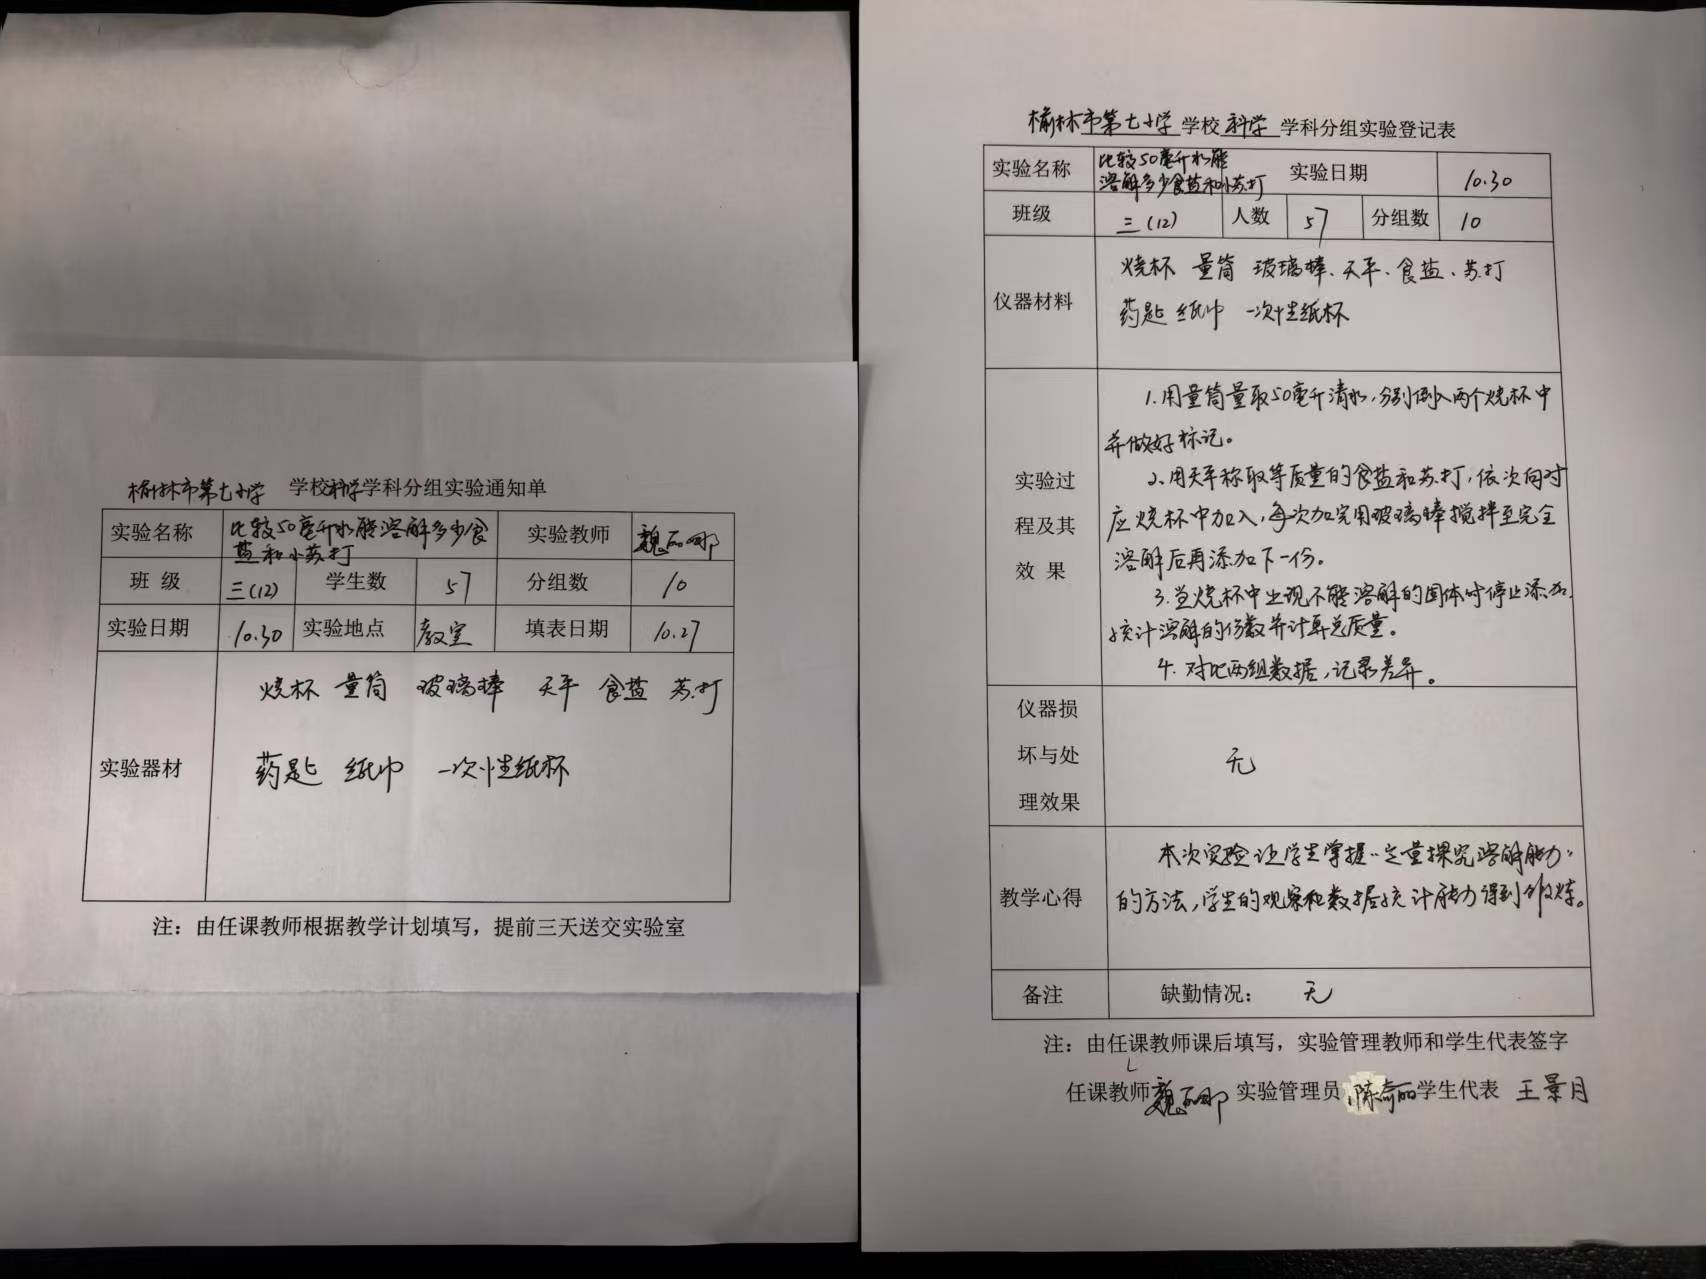 榆林市第七小学 学校科学学科分组实验通知单
实验名称 比较50毫升水能溶解多少食盐和小苏打 实验教师
班 级 三(12) 学生数 57 分组数 10
实验日期 10.30 实验地点 教室 填表日期 10.27
实验器材
烧杯 量筒 玻璃棒 天平 食盐 苏打
药匙 纸巾 一次性纸杯
注：由任课教师根据教学计划填写，提前三天送交实验室
榆林市第七小学学校科学学科分组实验登记表
实验名称 比较50毫升水能溶解多少食盐和小苏打 实验日期 10.30
班级 三(12) 人数 57 分组数 10
仪器材料
烧杯 量筒 玻璃棒、天平、食盐、苏打
药匙 纸巾 一次性纸杯
实验过程及其效果
1.用量筒量取50毫升清水，分别倒入两个烧杯中
并做好标记。
2.用天平称取等质量的食盐和苏打，依次向对
应烧杯中加入，每次加完用玻璃棒搅拌至完全
溶解后再添加下一份。
3.当烧杯中出现不能溶解的固体时停止添加，
统计溶解的份数并计算总质量。
4.对比两组数据，记录差异。
仪器损坏与处理效果 无
教学心得
本次实验让学生掌握“定量探究溶解能力”
的方法，学生的观察和数据统计能力得到锻炼。
备注 缺勤情况： 无
注：由任课教师课后填写，实验管理教师和学生代表签字
任课教师 实验管理员 陈奇丽 学生代表 王景月